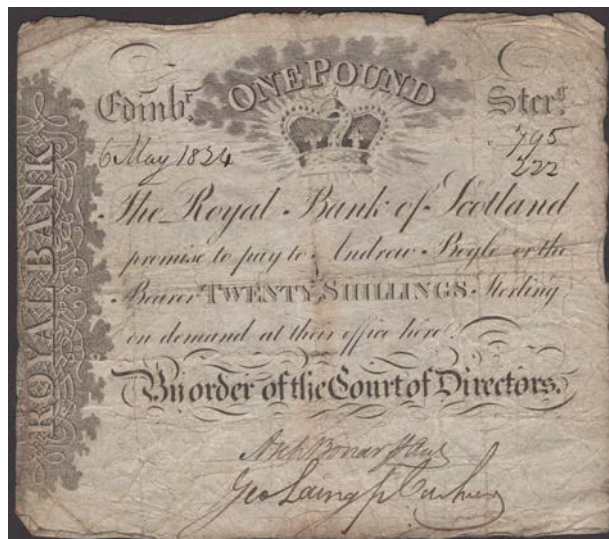 ROYAL BANK
ONE POUND
Edinbr. Sterg.
6 May 1824 795
222
The Royal Bank of Scotland
promise to pay to Andrew Bogle or the
Bearer TWENTY SHILLINGS Sterling
on demand at their office here.
By order of the Court of Directors.
Arch Bonar
Geo Laing